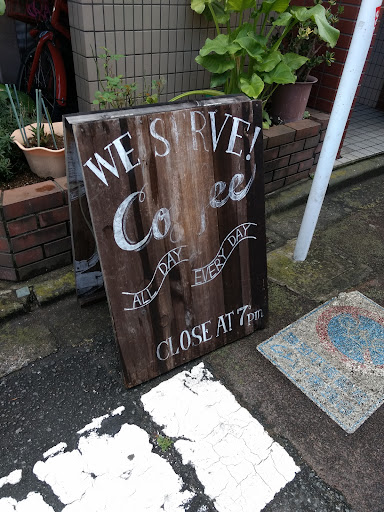 WE SERVE!
Coffee
ALL DAY
EVERY DAY
CLOSE AT 7pm